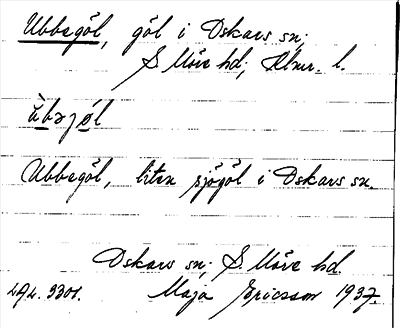 Ubbegöl, göl i Oskars sn;
S Möre hd; Klmr. l.
ùbəjøl
Ubbegöl, liten sjögöl i Oskars sn.
Oskars sn; S. Möre hd.
LAL. 3301. Maja Ericsson 1937.